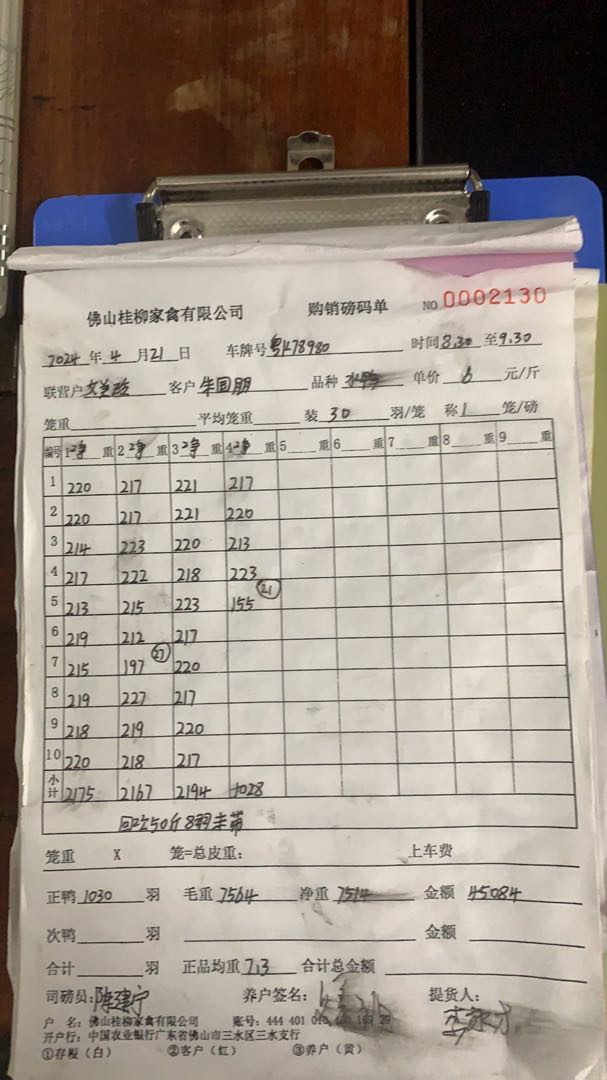 佛山桂柳家禽有限公司 购销磅码单 NO 0002130
2024 年 4 月 21 日 车牌号 粤K78980 时间 8.30 至 9.30
联营户 客户 朱国朋 品种 水鸭 单价 6 元/斤
笼重 平均笼重 装 30 羽/笼 称 1 笼/磅
编号 1 净 重 2 净 重 3 净 重 4 净 重 5 重 6 重 7 重 8 重 9 重
1 220 217 221 217
2 220 217 221 220
3 214 223 220 213
4 217 222 218 223
5 213 215 223 155 21
6 219 212 217
7 215 197 27 220
8 219 227 217
9 218 219 220
10 220 218 217
小计 2175 2167 2194 1028
50斤8羽
笼重 X 笼=总皮重: 上车费
正鸭 1030 羽 毛重 7564 净重 7514 金额 45084
次鸭 羽 金额
合计 羽 正品均重 7.3 合计总金额
司磅员: 陈建宁 养户签名: 提货人:
户 名: 佛山桂柳家禽有限公司 账号: 444 401 010
开户行: 中国农业银行广东省佛山市三水区三水支行
①存根（白） ②客户（红） ③养户（黄）